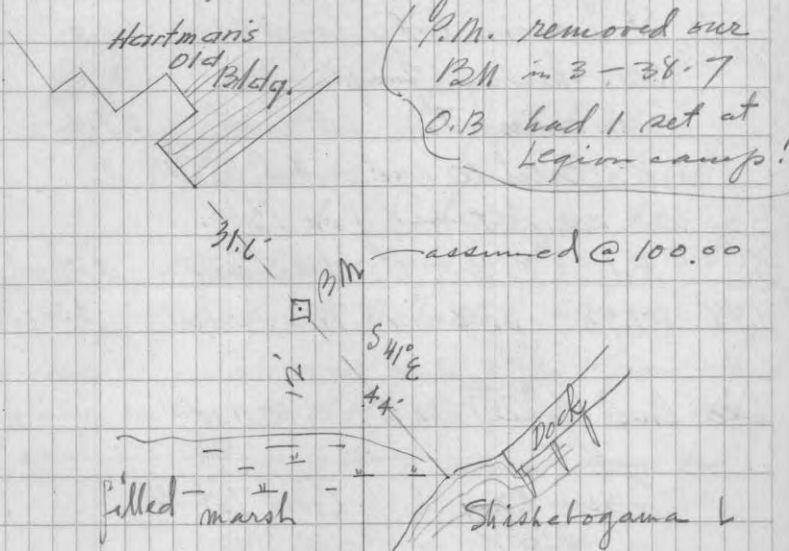 Hartman's
old
Bldg.
P.M. removed our
BM in 3-38-7
O.B had 1 set at
Legion camp!
31.6'
BM
assumed @ 100.00
S 41° E
12'
44'
Dock
filled marsh
Shishebogama L